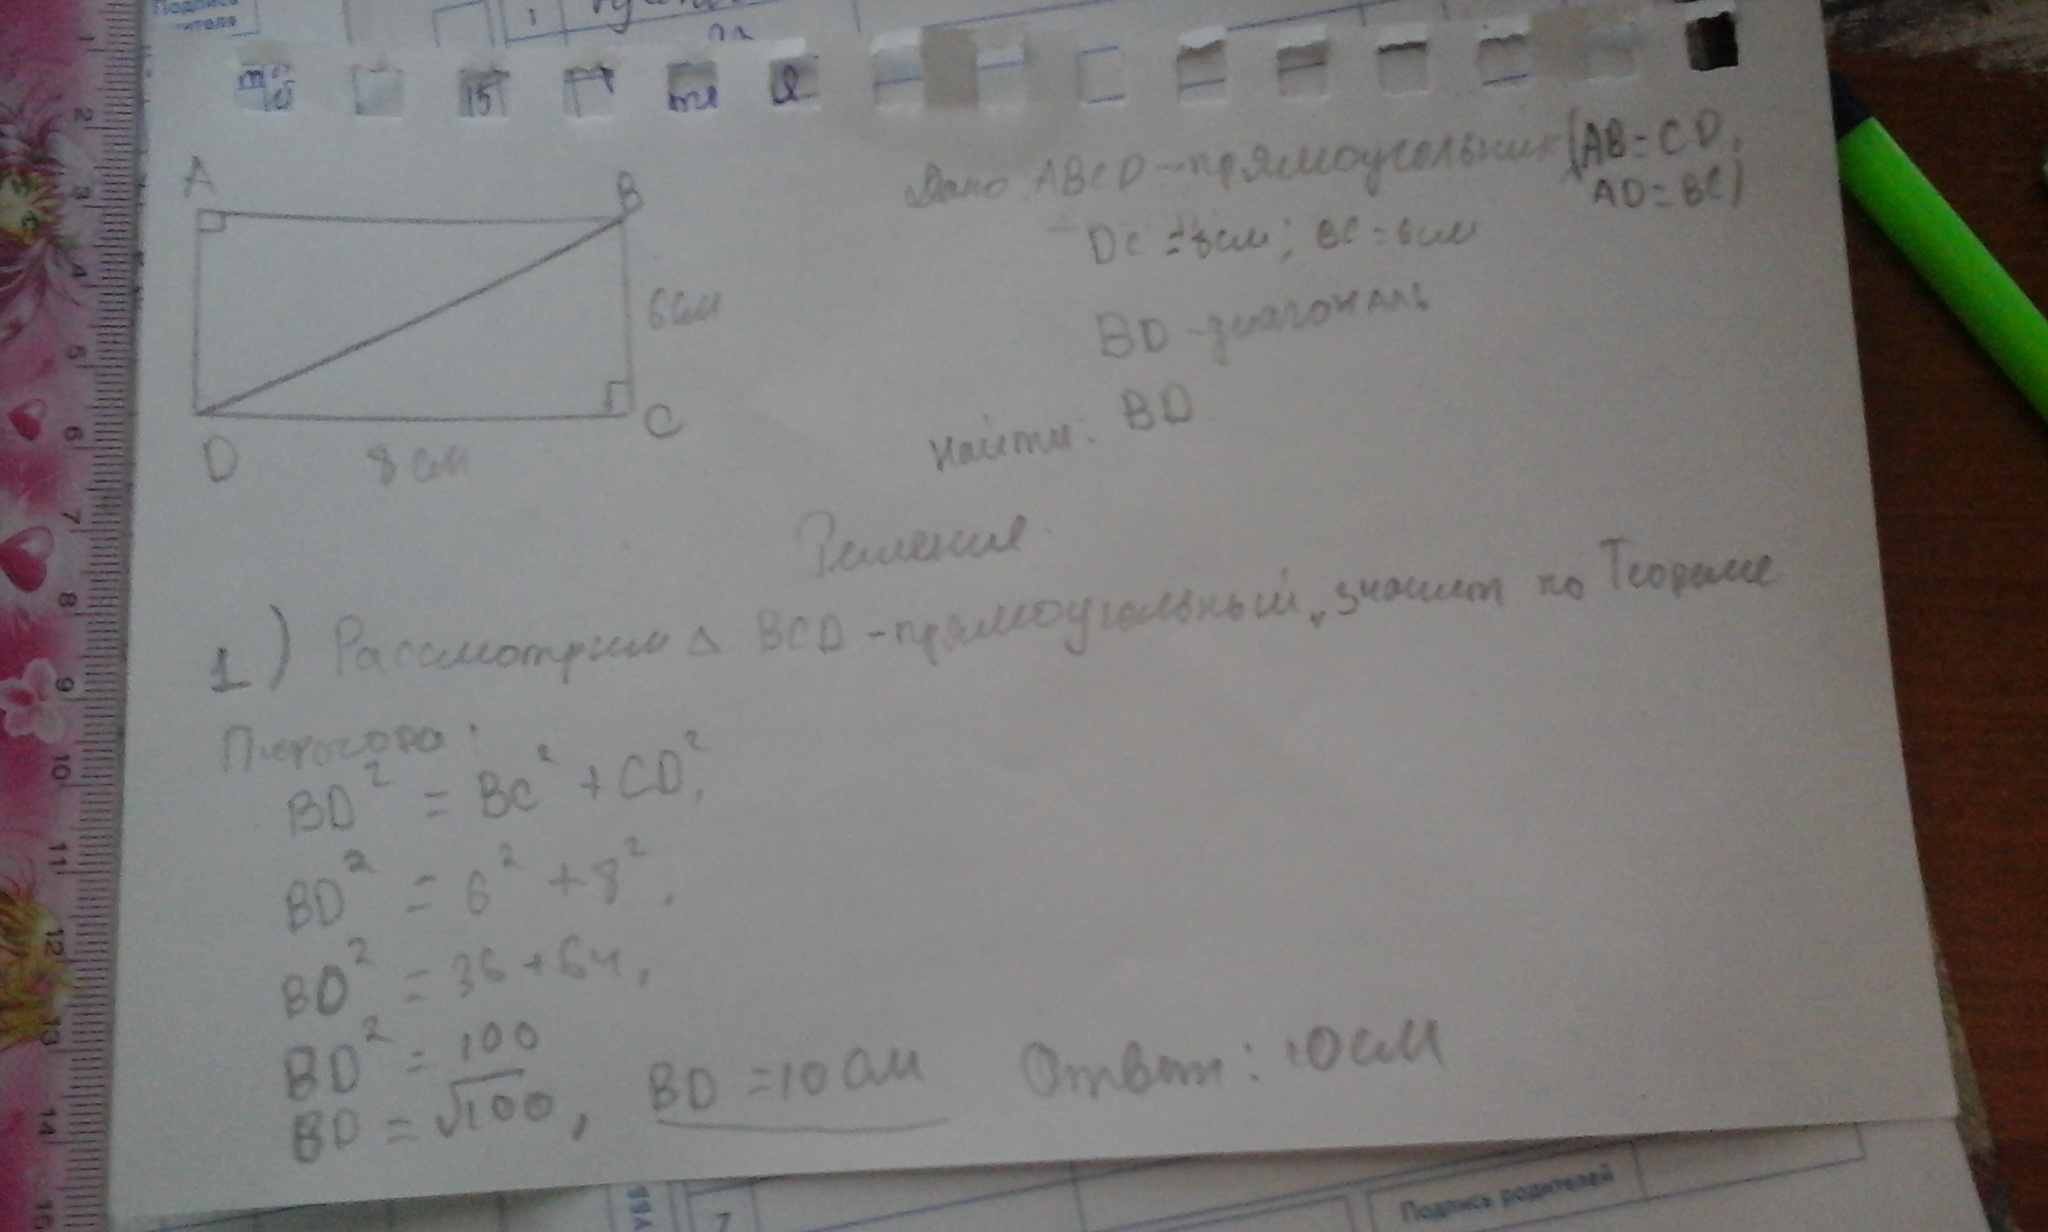 Подпись
1
15
A
B
Дано: ABCD - прямоугольник (AB = CD,
AD = BC)
DC = 8 см; BC = 6 см
6 см
BD - диагональ
C
Найти: BD
D
8 см
Решение.
1) Рассмотрим △ BCD - прямоугольный, значит по Теореме
Пифагора:
BD² = BC² + CD²,
BD² = 6² + 8²,
BD² = 36 + 64,
BD² = 100
BD = √100, BD = 10 см Ответ: 10 см
7
Подпись родителей
1
2
3
4
5
6
7
8
9
10
11
12
13
14
15